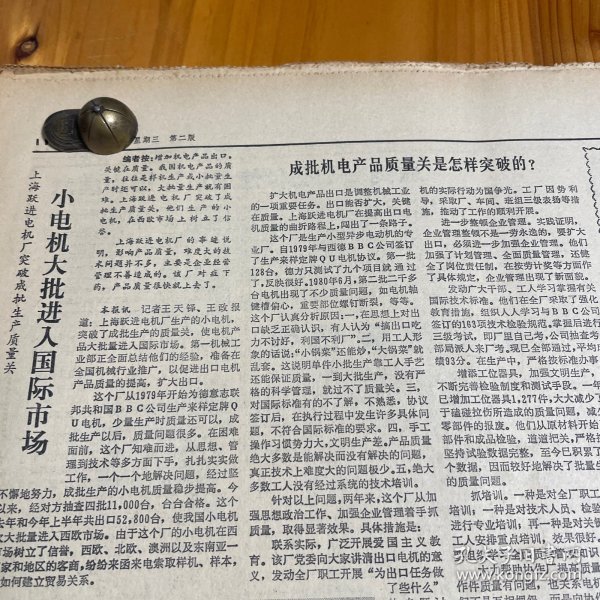 星期三 第二版
上海跃进电机厂突破成批生产质量关
小电机大批进入国际市场
编者按：增加机电产品出口，
关键在质量。我国机电产品的质
量，往往是样机生产或小批量生
产时还可以，大批量生产就有困
难。上海跃进电机厂突破了成
批生产质量关，他们生产的小
电机，在西欧市场上树立了信
誉。
上海跃进电机厂的事迹说
明，影响产品质量，难度大的技
术问题并不多，主要是企业经营
管理不善造成的。该厂对症下
药，产品质量很快就上去了。
本报讯 记者王天铎、王政报
道：上海跃进电机厂生产的小电机，
突破了成批生产的质量关，使电机产
品大批量进入国际市场。第一机械工
业部正全面总结他们的经验，准备在
全国机械行业推广，以促进出口电机
产品质量的提高，扩大出口。
这个厂从1979年开始为德意志联
邦共和国BBC公司生产来样定牌QU
电机，少量生产时质量还可以，成
批生产以后，质量问题很多。在困难
面前，这个厂知难而进，从思想、管
理到技术等多方面下手，扎扎实实做
工作，一个一个地解决问题，经过坚
不懈地努力，成批生产的小电机质量稳步提高。今
以来，经对方抽查四批11,000台，台台合格。这个
去年和今年上半年共出口52,800台，使我国小电机
大大批量进入西欧市场。由于这个厂的小电机在西
市场树立了信誉，西欧、北欧、澳洲以及东南亚一
家和地区的客商，纷纷来函来电索取样机，样本，
如何建立贸易关系。
成批机电产品质量关是怎样突破的？
扩大机电产品出口是调整机械工业
的一项重要任务。出口能否扩大，关键
在质量。上海跃进电机厂在提高出口电
机质量的曲折路程上，闯出了一条路子。
这个厂是生产小型异步电动机的专
业厂。自1979年与西德BBC公司签订
了生产来样定牌QU电机协议。第一批
128台，德方只测试了九个项目就通过
了，反映很好。1980年6月，第二批二千多
台电机出现了不少质量问题，如电机轴
键槽偏心，重要部位螺钉断裂，等等。
这个厂认真分析原因：一、在思想上对出
口缺乏正确认识，有人认为“搞出口吃
力不讨好，利国不利厂”。二、用工人形
象的话说：“小锅菜”还能炒，“大锅菜”就
乱套。这说明单件小批生产靠工人手艺
还能保证质量，一到大批生产，没有严
格的科学管理，就过不了质量关。三、
对国际标准有的不了解，不熟悉，协议
签订后，在执行过程中发生许多具体问
题，不符合国际标准的要求。四、手工
操作习惯势力大，文明生产差。产品质量
绝大多数是能解决而没有解决的问题，
真正技术上难度大的问题极少。五、绝大
多数工人没有经过系统的技术培训。
针对以上问题，两年来，这个厂从加
强思想政治工作、加强企业管理着手抓
质量，取得显著效果。具体措施是：
联系实际，广泛开展爱国主义教
育。该厂党委向大家讲清出口电机的意
义，发动全厂职工开展“为出口任务做
了些什么”
机的实际行动为国争光。工厂因势利
导，采取厂、车间、班组三级表扬等措
施，推动了工作的顺利开展。
进一步整顿企业管理。实践证明，
企业管理整顿不是一劳永逸的，要扩大
出口，必须进一步加强企业管理。他们
加强了计划管理、全面质量管理，还健
全了岗位责任制，在按劳计奖等方面作
了具体规定，企业管理出现了新面貌。
发动广大干部、工人学习掌握有关
国际技术标准。他们在全厂采取了强化
教育措施，组织人人学习与BBC公司
签订的163项技术检验规范。掌握后进行
三级考试，即厂里自己考，公司抽查考
部局派人来厂考。现已全部通过，平均
绩83分。在生产中，严格按标准办事
增添工位器具，加强文明生产，
不断完善检验制度和测试手段。一年
已增加工位器具1,277件，大大减少了
于磕碰拉伤所造成的质量问题，减少
零部件的报废。他们从原材料开始
部件和成品检验，道道把关，严格
坚持试验数据完整，至今已积累了
个数据，因而较好地解决了批量生
的质量问题。
抓培训。一种是对全厂职工
培训，一种是对技术人员、检验
进行专业培训，再一种是对关键
工人安排重点培训，效果很好。